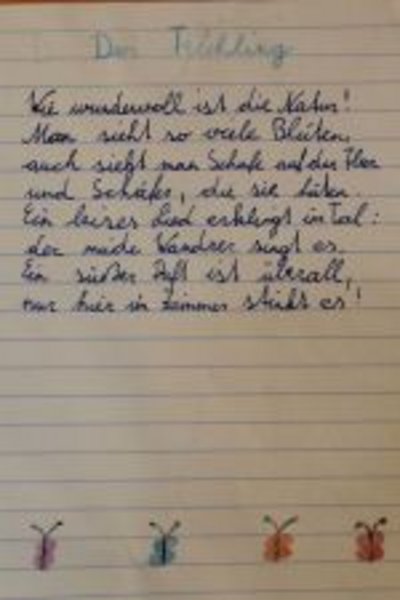 Der Frühling
Wie wundervoll ist die Natur!
Man sieht so viele Blüten,
auch sieht man Schafe auf der Flur
und Schäfer, die sie hüten.
Ein leises Lied erklingt im Tal:
der müde Wandrer singt es.
Ein süßer Duft ist überall,
nur hier im Zimmer stinkt es!